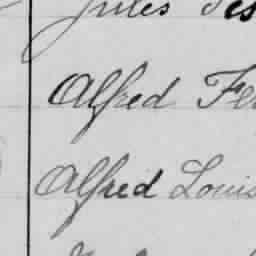 Jules
Alfred
Alfred Louis